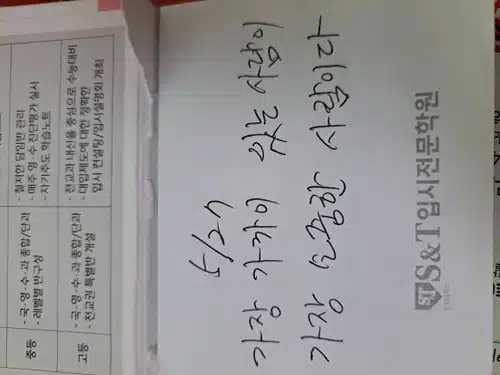 중등
- 국·영·수·과 종합/단과
- 레벨별 반구성
- 철저한 담임반 관리
- 매주 영·수 진단평가 실시
- 자기주도 학습노트
고등
- 국·영·수·과 종합/단과
- 전교권 특별반 개설
- 전교과 내신을 중심으로 수능대비
- 대입제도에 대한 정확한
입시 컨설팅/입시설명회 개최
5/27
가장 가까이 있는 사람이
가장 소중한 사람이다
S&T입시전문학원